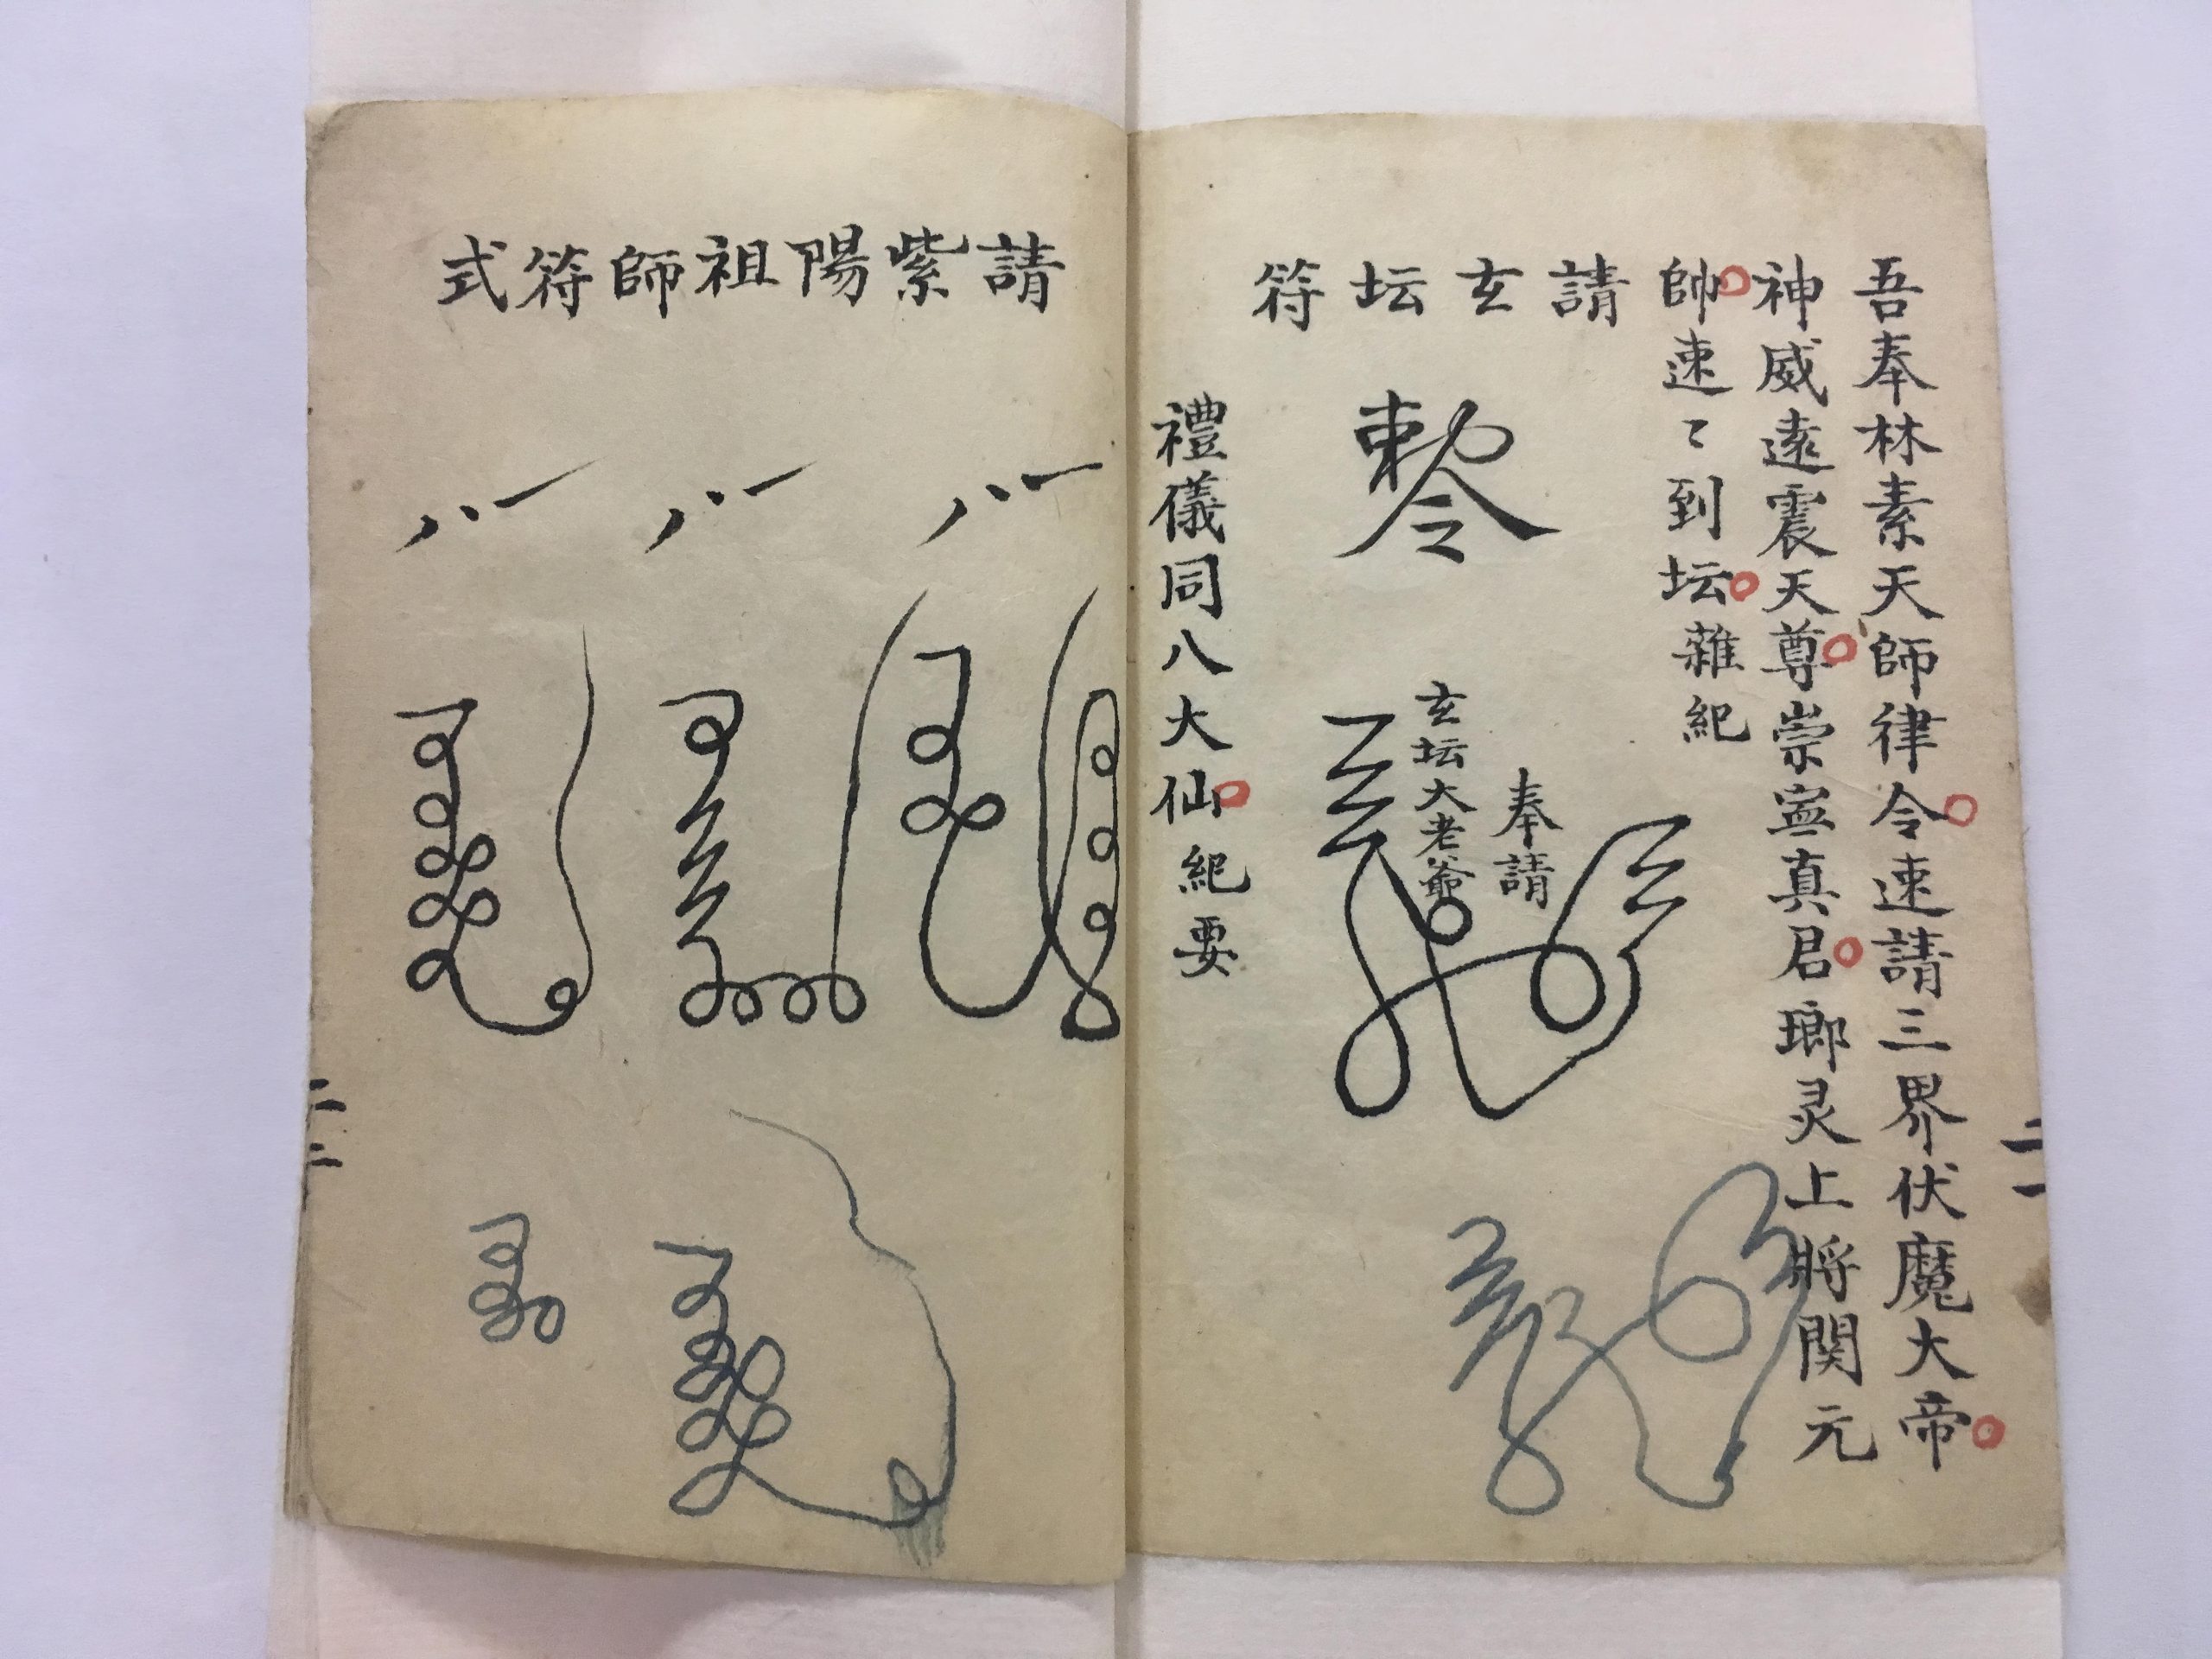 吾奉林素天師律令速請三界伏魔大帝
神威遠震天尊崇寍真君瑯灵上將関元
帥速〻到坛雜紀
請玄坛符
敕令
奉請
玄坛大老爺
禮儀同八大仙紀要
二一
請紫陽祖師符式
二二